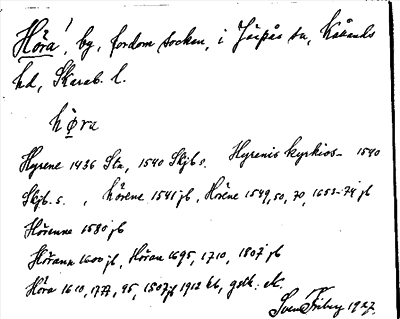 Höra, by, fordom socken, i Järpås sn, Kålands
hd, Skarab. l.
høra
Hyrene 1436 Sta, 1540 Skjb s. Hyrenis kyrkios- 1540
Skjb. s. , hörene 1541 jb, Hörene 1549, 50, 70, 1653-74 jb
Hörenne 1580 jb
Hörann 1600 jb, Höran 1695, 1710, 1807 jb
Höra 1610, 1777, 95, 1807 jb 1912 kk, gstk. etc.
Sven Friberg 1927.